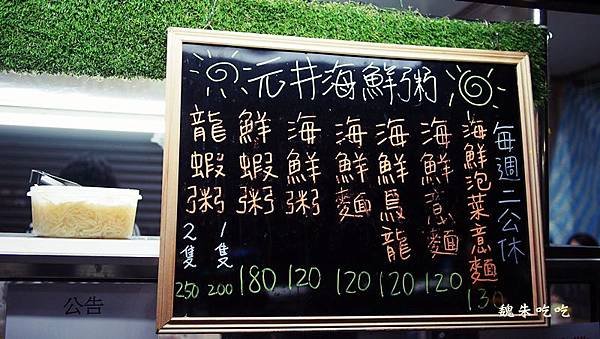 沅井海鮮粥
每週二公休
海鮮泡菜意麵
130
海鮮意麵
120
海鮮烏龍
120
海鮮麵
120
海鮮粥
120
鮮蝦粥
180
龍蝦粥
1隻
200
2隻
250
公告
魏朱吃吃